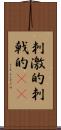 刺激的刺
戟的